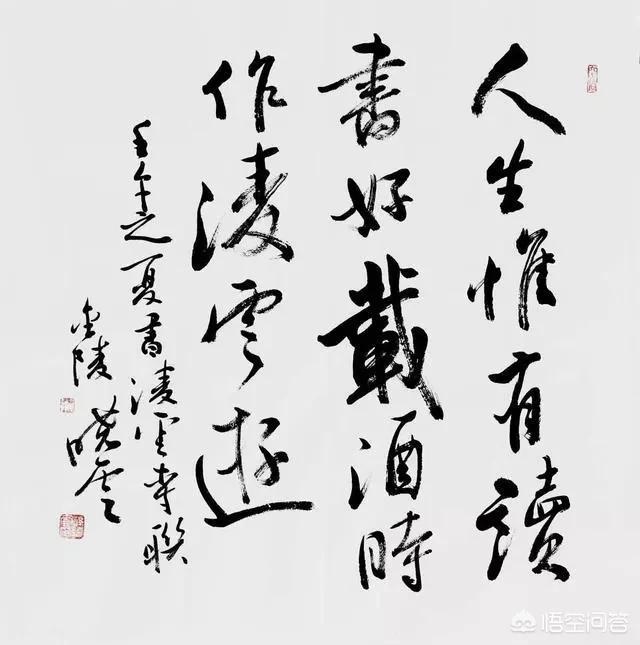 人生惟有讀
書好載酒時
作淩雲遊
壬午之夏書淩雲寺聯
金陵曉雲
悟空问答